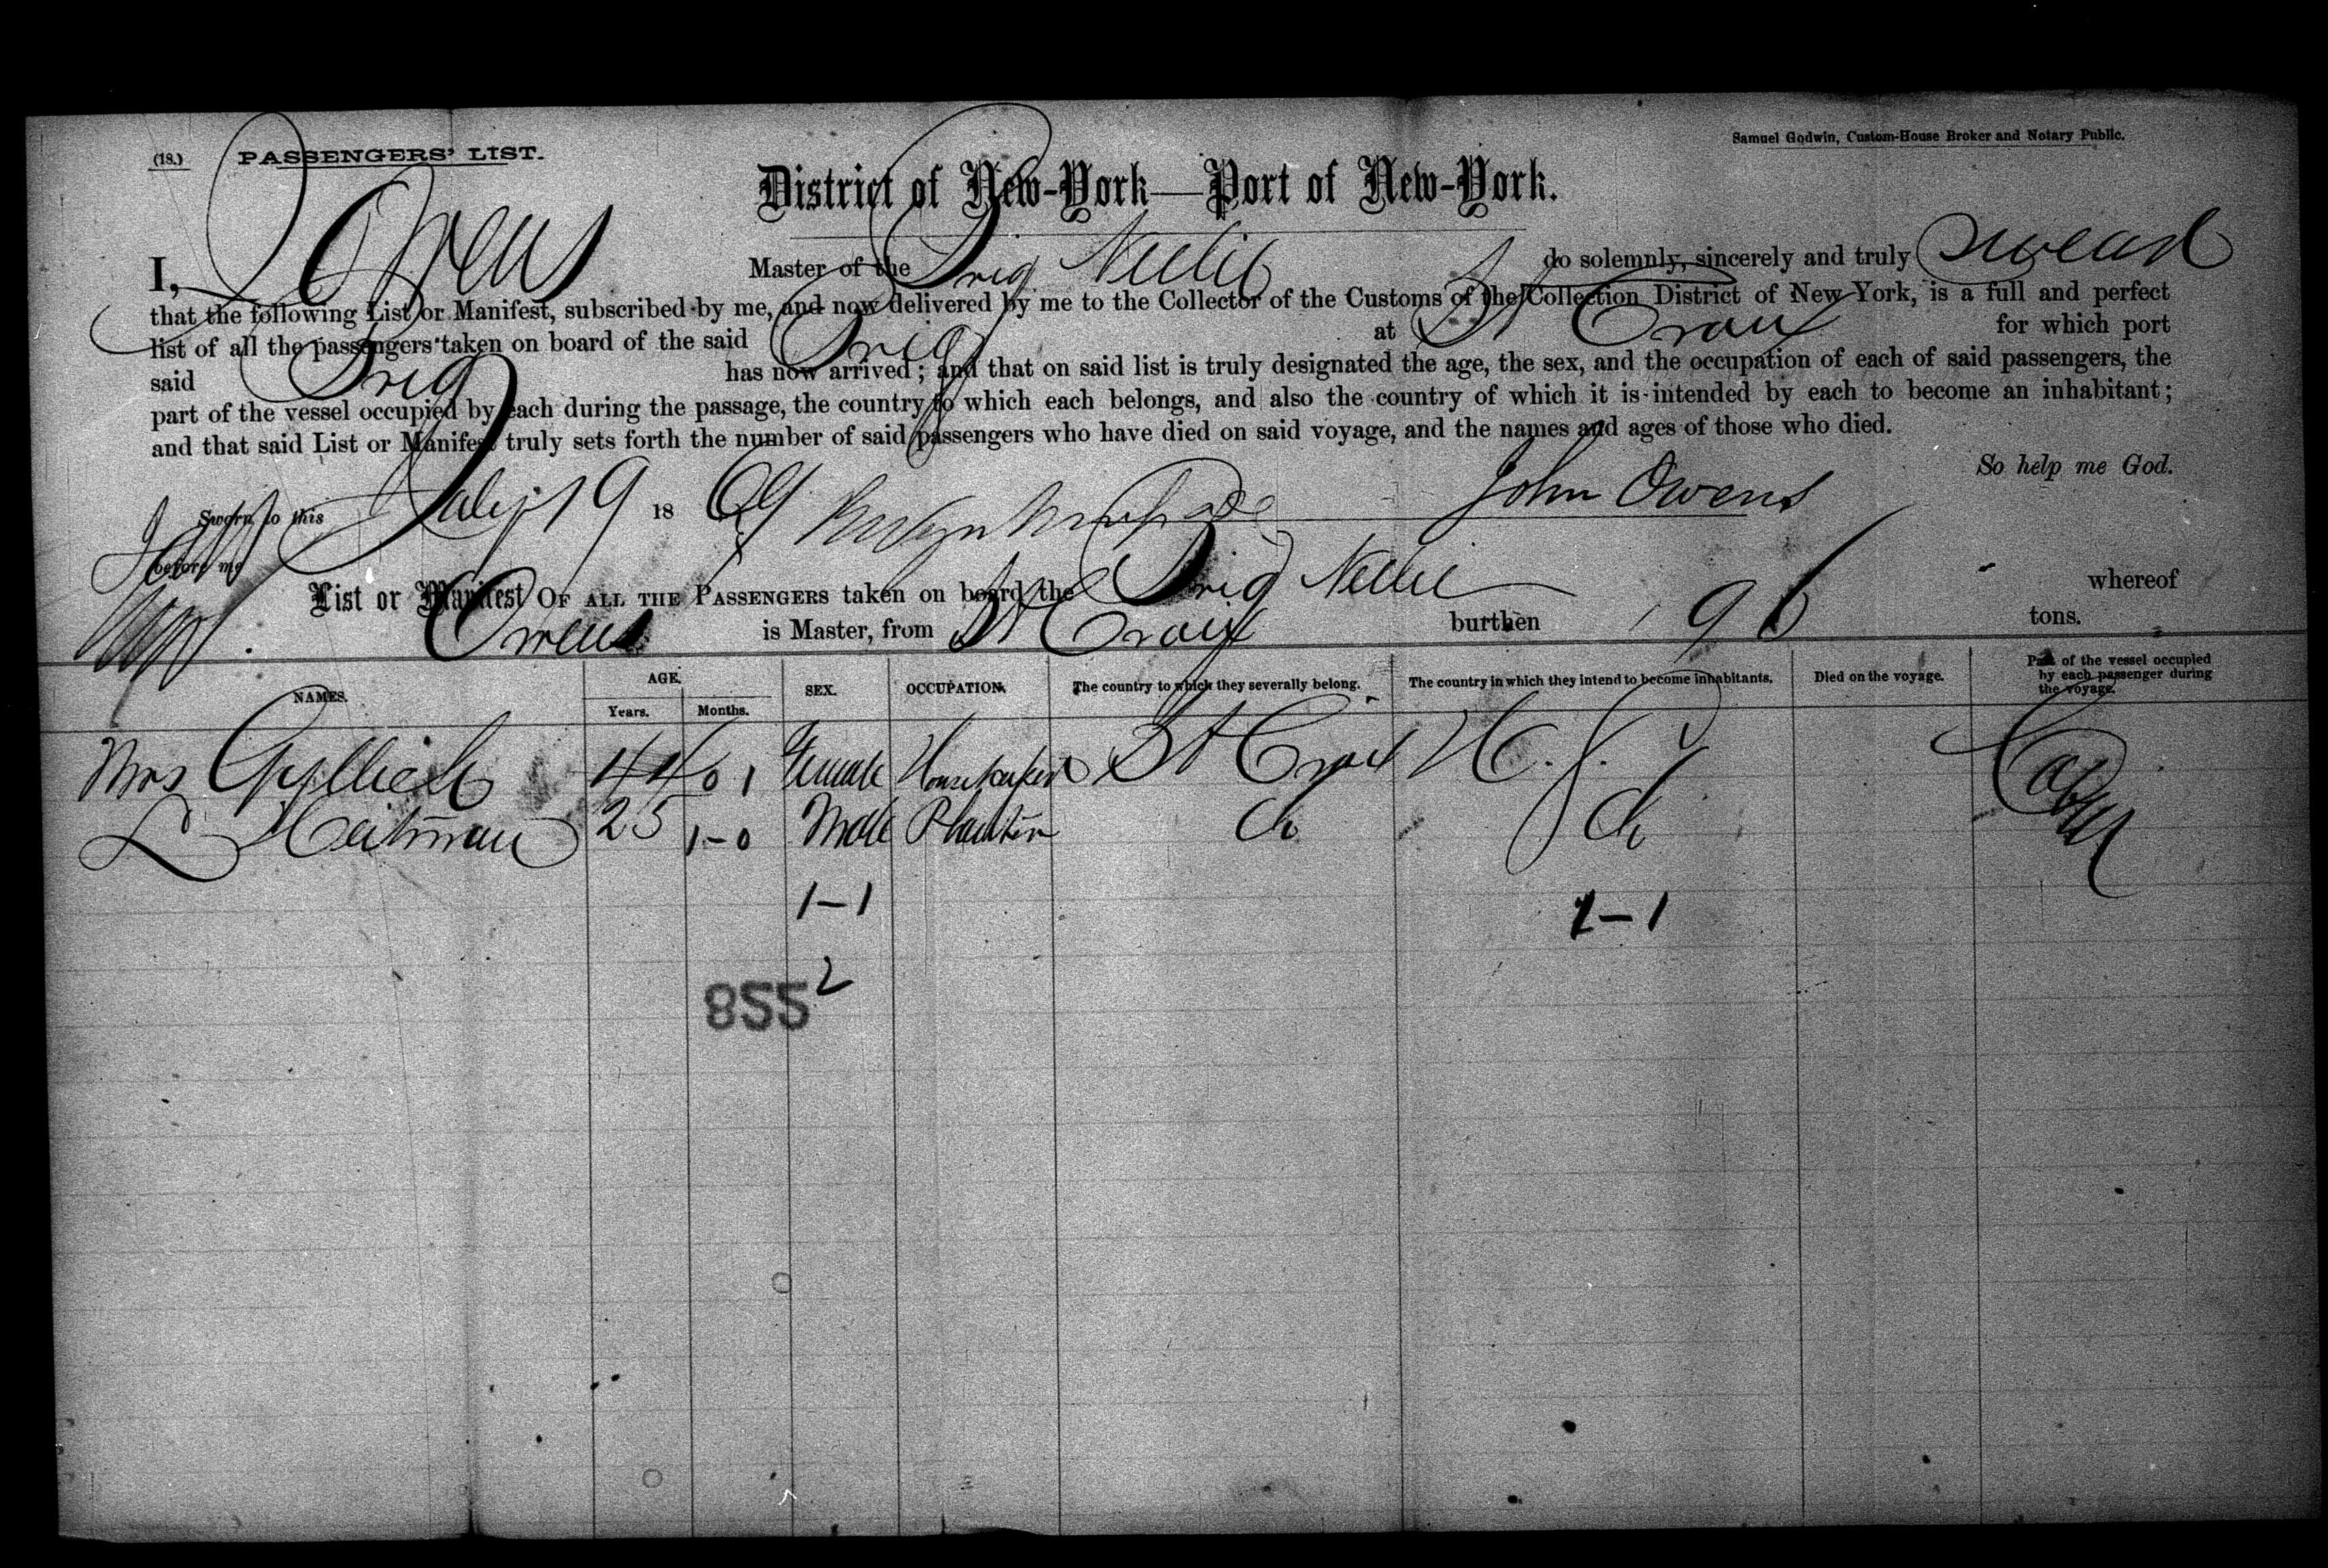 (18.) PASSENGERS' LIST.
Samuel Godwin, Custom-House Broker and Notary Public.
District of New-York—Port of New-York.
I, J Owens Master of the Brig Nellie do solemnly, sincerely and truly swear
that the following List or Manifest, subscribed by me, and now delivered by me to the Collector of the Customs of the Collection District of New York, is a full and perfect
list of all the passengers taken on board of the said Brig at St Croix for which port
said Brig has now arrived; and that on said list is truly designated the age, the sex, and the occupation of each of said passengers, the
part of the vessel occupied by each during the passage, the country to which each belongs, and also the country of which it is intended by each to become an inhabitant;
and that said List or Manifest truly sets forth the number of said passengers who have died on said voyage, and the names and ages of those who died.
So help me God.
Sworn to this July 19 1869 John Owens
before me
List or Manifest OF ALL THE PASSENGERS taken on board the Brig Nellie whereof
Owens is Master, from St Croix burthen 196 tons.
NAMES. AGE. Years. Months. SEX. OCCUPATION. The country to which they severally belong. The country in which they intend to become inhabitants. Died on the voyage. Part of the vessel occupied by each passenger during the voyage.
Mrs 44 0 1 Female Housekeeper St Croix Cabin
L Heitman 25 1-0 Male Planter do do
1-1 1-1
2
855